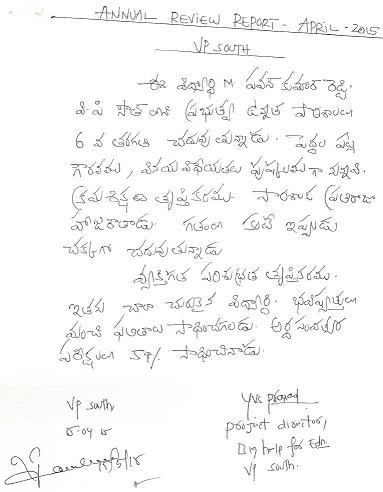 ANNUAL REVIEW REPORT - APRIL - 2015
VP SOUTH
ఈ విద్యార్థి M పవన్ కుమార్ రెడ్డి.
వి.పి సౌత్ ప్రభుత్వ ఉన్నత పాఠశాలలో
6 వ తరగతి చదువుతున్నాడు. పెద్దల పట్ల
గౌరవము, వినయ విధేయతలు పుష్కలముగా ఉన్నవి.
క్రమశిక్షణ తృప్తికరము. పాఠశాలకు ప్రతిరోజు
హాజరౌతాడు. గతంలో కంటే ఇప్పుడు
చక్కగా చదువుతున్నాడు
వ్యక్తిగత పరిశుభ్రత తృప్తికరము.
ఇతను చాలా చురుకైన విద్యార్థి. భవిష్యత్తులో
మంచి ఫలితాలు సాధించగలడు. అర్ధ సంవత్సర
పరీక్షలలో 59% సాధించినాడు.
VP South
15-04-15
YVS prasad
project director,
Big help for Edn.
VP South.